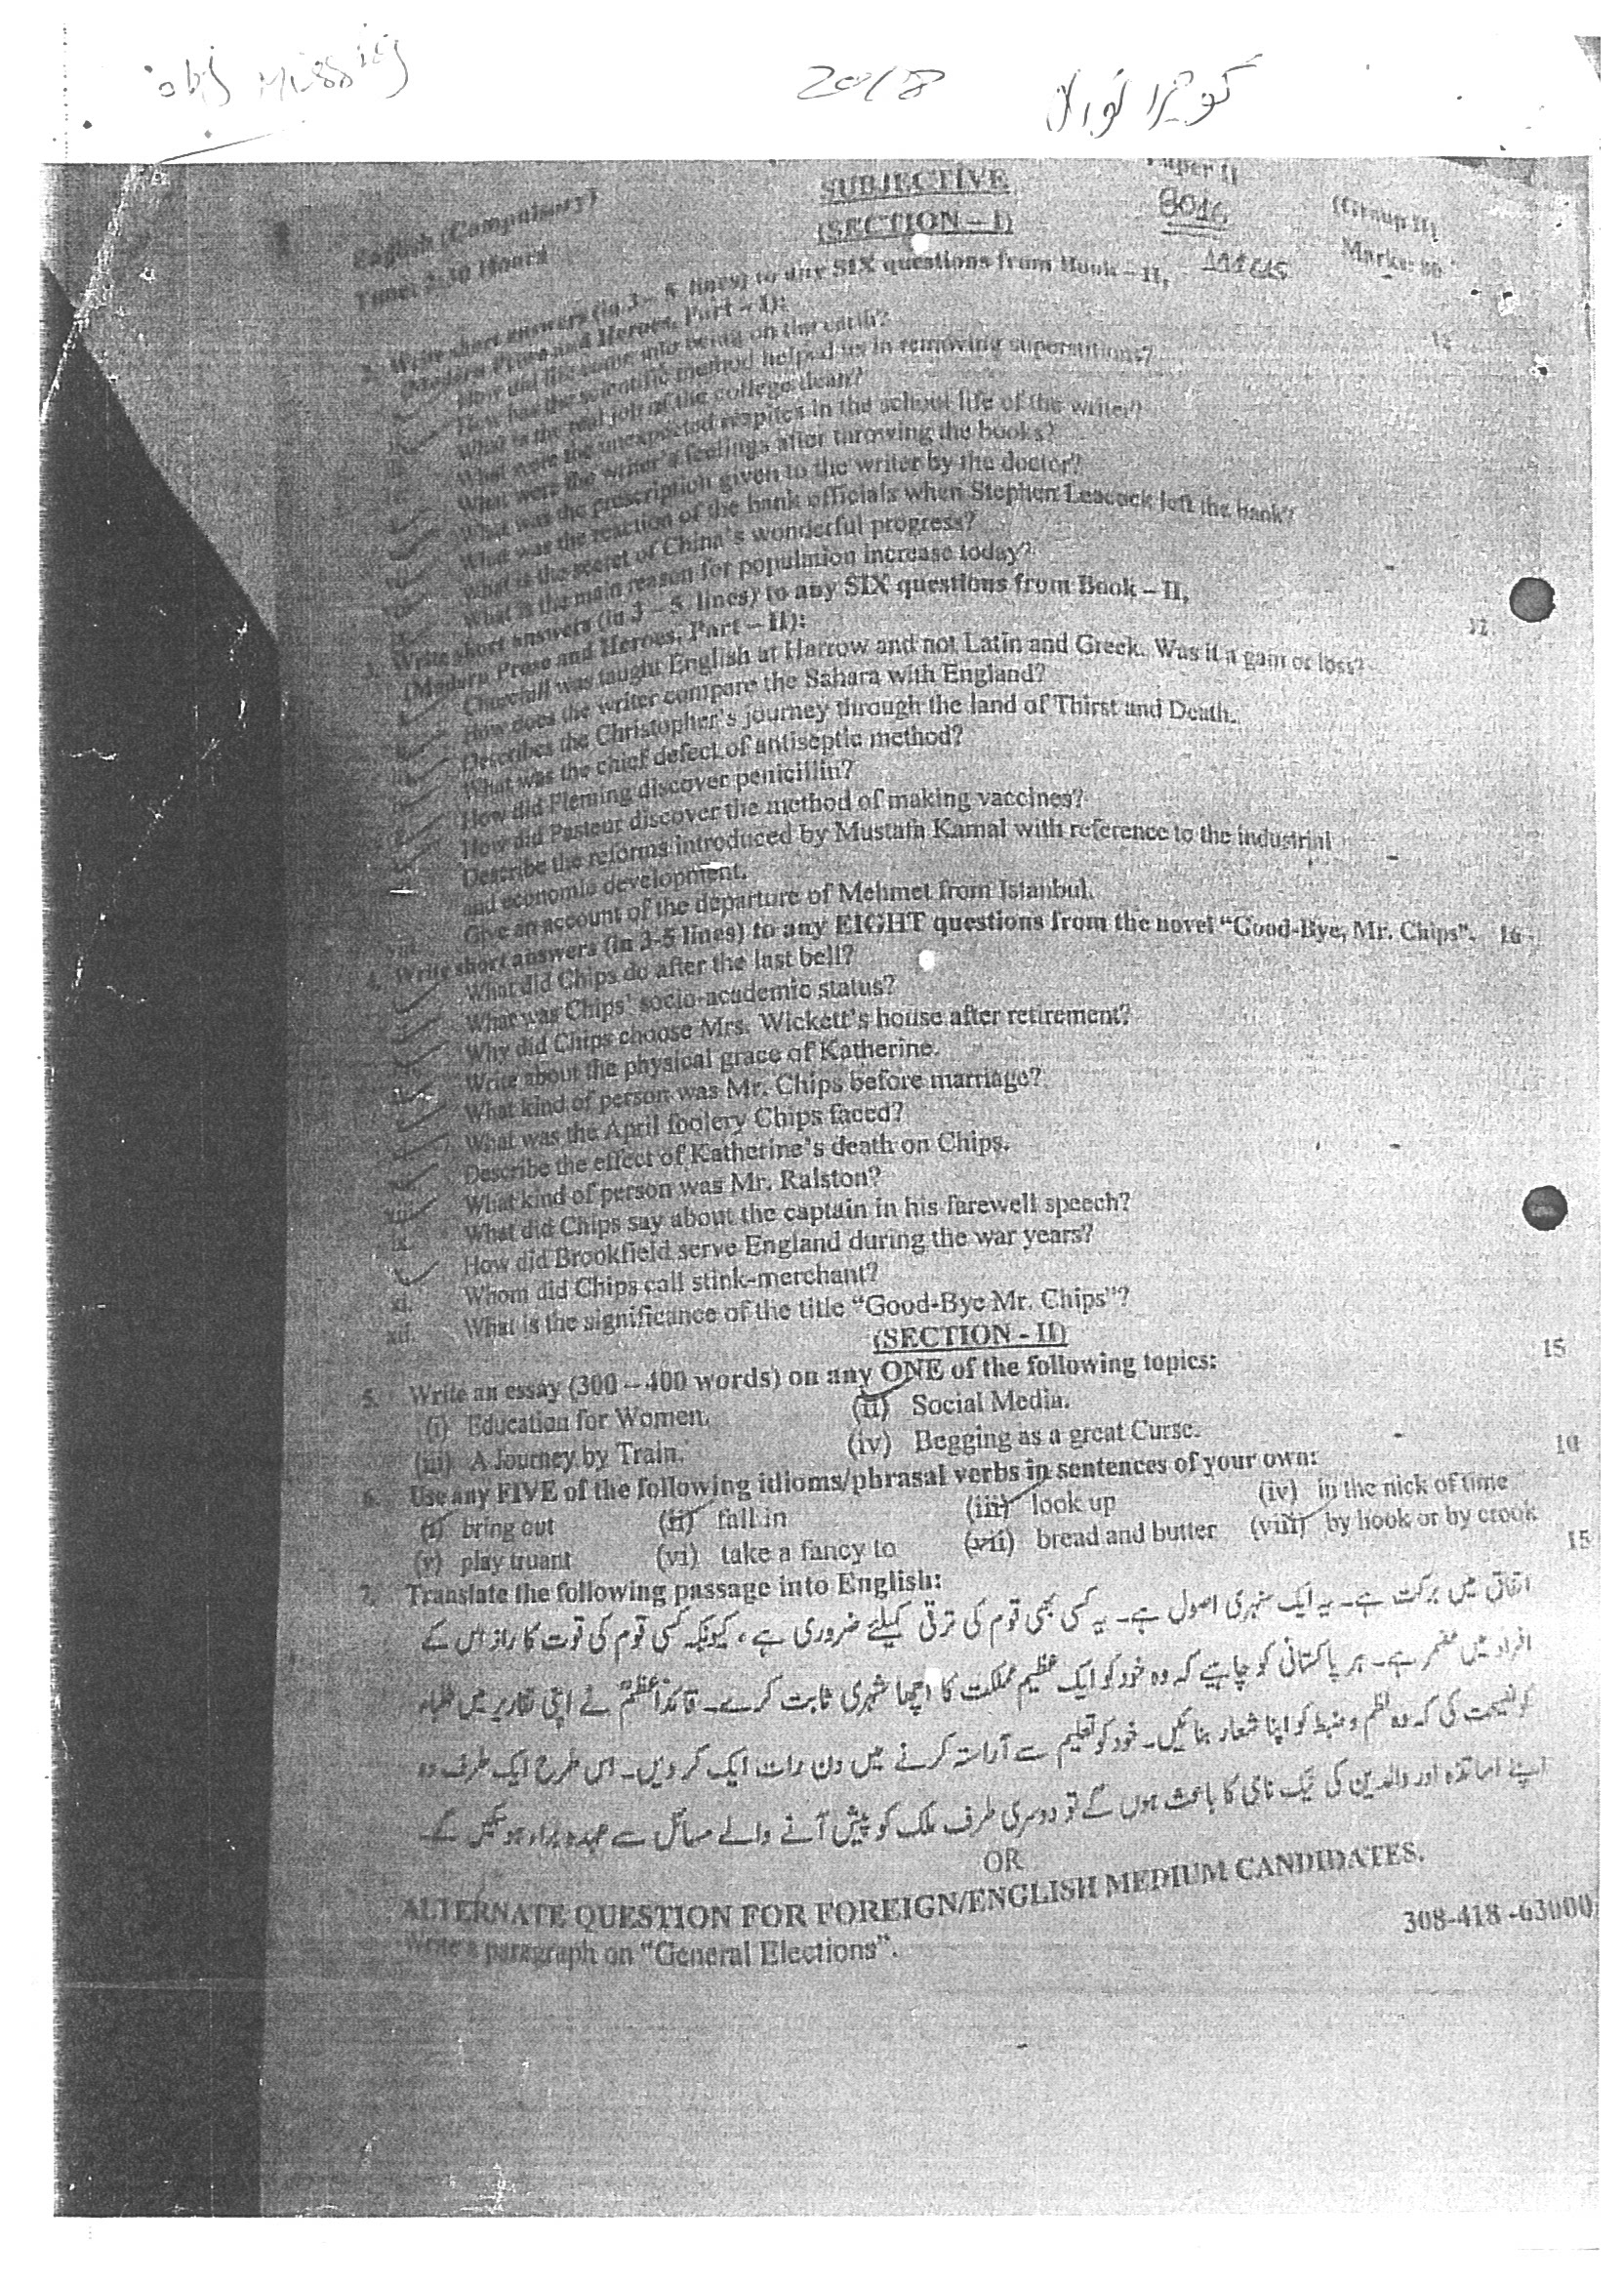 obj Missing 2018 گوجرانوالہ
SUBJECTIVE
(SECTION – I)
English (Compulsory) Paper II (Group II)
Time: 2:30 Hours Marks: 80
2. Write short answers (in 3 – 5 lines) to any SIX questions from Book – II, 12
(Modern Prose and Heroes, Part – I):
How did life come into being on the earth?
How has the scientific method helped us in removing superstitions?
What is the real job of the college dean?
What were the unexpected respites in the school life of the writer?
What were the writer's feelings after throwing the books?
What was the prescription given to the writer by the doctor?
What was the reaction of the bank officials when Stephen Leacock left the bank?
What is the secret of China's wonderful progress?
What is the main reason for population increase today?
3. Write short answers (in 3 – 5 lines) to any SIX questions from Book – II, 12
(Modern Prose and Heroes, Part – II):
Churchill was taught English at Harrow and not Latin and Greek. Was it a gain or loss?
How does the writer compare the Sahara with England?
Describes the Christopher's journey through the land of Thirst and Death.
What was the chief defect of antiseptic method?
How did Fleming discover penicillin?
How did Pasteur discover the method of making vaccines?
Describe the reforms introduced by Mustafa Kamal with reference to the industrial
and economic development.
viii. Give an account of the departure of Mehmet from Istanbul.
4. Write short answers (in 3-5 lines) to any EIGHT questions from the novel "Good-Bye, Mr. Chips". 16
What did Chips do after the last bell?
What was Chips' socio-academic status?
Why did Chips choose Mrs. Wickett's house after retirement?
Write about the physical grace of Katherine.
What kind of person was Mr. Chips before marriage?
What was the April foolery Chips faced?
Describe the effect of Katherine's death on Chips.
viii. What kind of person was Mr. Ralston?
ix. What did Chips say about the captain in his farewell speech?
x. How did Brookfield serve England during the war years?
xi. Whom did Chips call stink-merchant?
xii. What is the significance of the title "Good-Bye Mr. Chips"?
(SECTION - II)
5. Write an essay (300 – 400 words) on any ONE of the following topics: 15
(i) Education for Women. (ii) Social Media.
(iii) A Journey by Train. (iv) Begging as a great Curse.
6. Use any FIVE of the following idioms/phrasal verbs in sentences of your own: 10
(i) bring out (ii) fall in (iii) look up (iv) in the nick of time
(v) play truant (vi) take a fancy to (vii) bread and butter (viii) by hook or by crook
7. Translate the following passage into English: 15
اتفاق میں برکت ہے۔ یہ ایک سنہری اصول ہے۔ یہ کسی بھی قوم کی ترقی کیلئے ضروری ہے، کیونکہ کسی قوم کی قوت کا راز اس کے
افراد میں مضمر ہے۔ ہر پاکستانی کو چاہیے کہ وہ خود کو ایک عظیم مملکت کا اچھا شہری ثابت کرے۔ قائداعظمؒ نے اپنی تقاریر میں طلباء
کو نصیحت کی کہ وہ نظم و ضبط کو اپنا شعار بنائیں۔ خود کو تعلیم سے آراستہ کرنے میں دن رات ایک کر دیں۔ اس طرح ایک طرف وہ
اپنے اساتذہ اور والدین کی نیک نامی کا باعث ہوں گے تو دوسری طرف ملک کو پیش آنے والے مسائل سے عہدہ براء ہو سکیں گے۔
OR
ALTERNATE QUESTION FOR FOREIGN/ENGLISH MEDIUM CANDIDATES.
Write a paragraph on "General Elections". 308-418 -63000